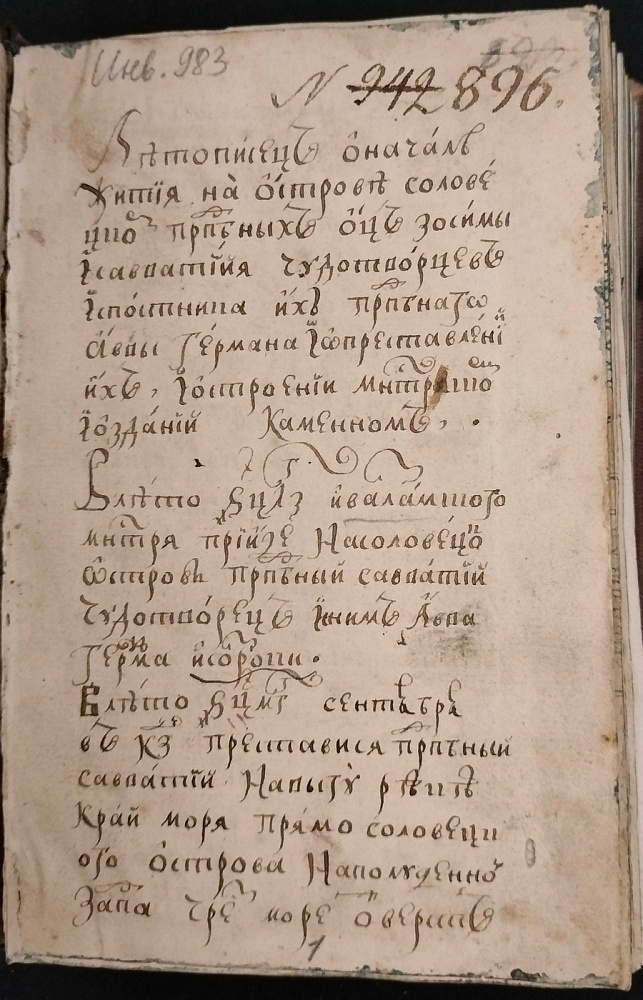 Инв. 983
N 942 896.
Лѣтописецъ ѡ началѣ
житїя на островѣ солове
цко прпбныхъ ѻцъ зосимы
и савватїйя чудотворцевъ
и спостника ихъ прпбнаго
аввы германа и ѡ преставленїи
ихъ, и ѡ строенїи мнтрьско
и ѡ зданїи каменномъ,
В лѣто ҂ѕцлз и валаамского
мнтря прїиде на соловецкїй
ѡстровъ прпбный савватїй
чудотворецъ и с нимъ авва
герма
В лѣто ҂ѕцмг сентѣбря
въ кз преставися прпбный
савватїй на выгу рѣкѣ
край моря прямо соловецк
ого острова на полуденно
запа чре море
1